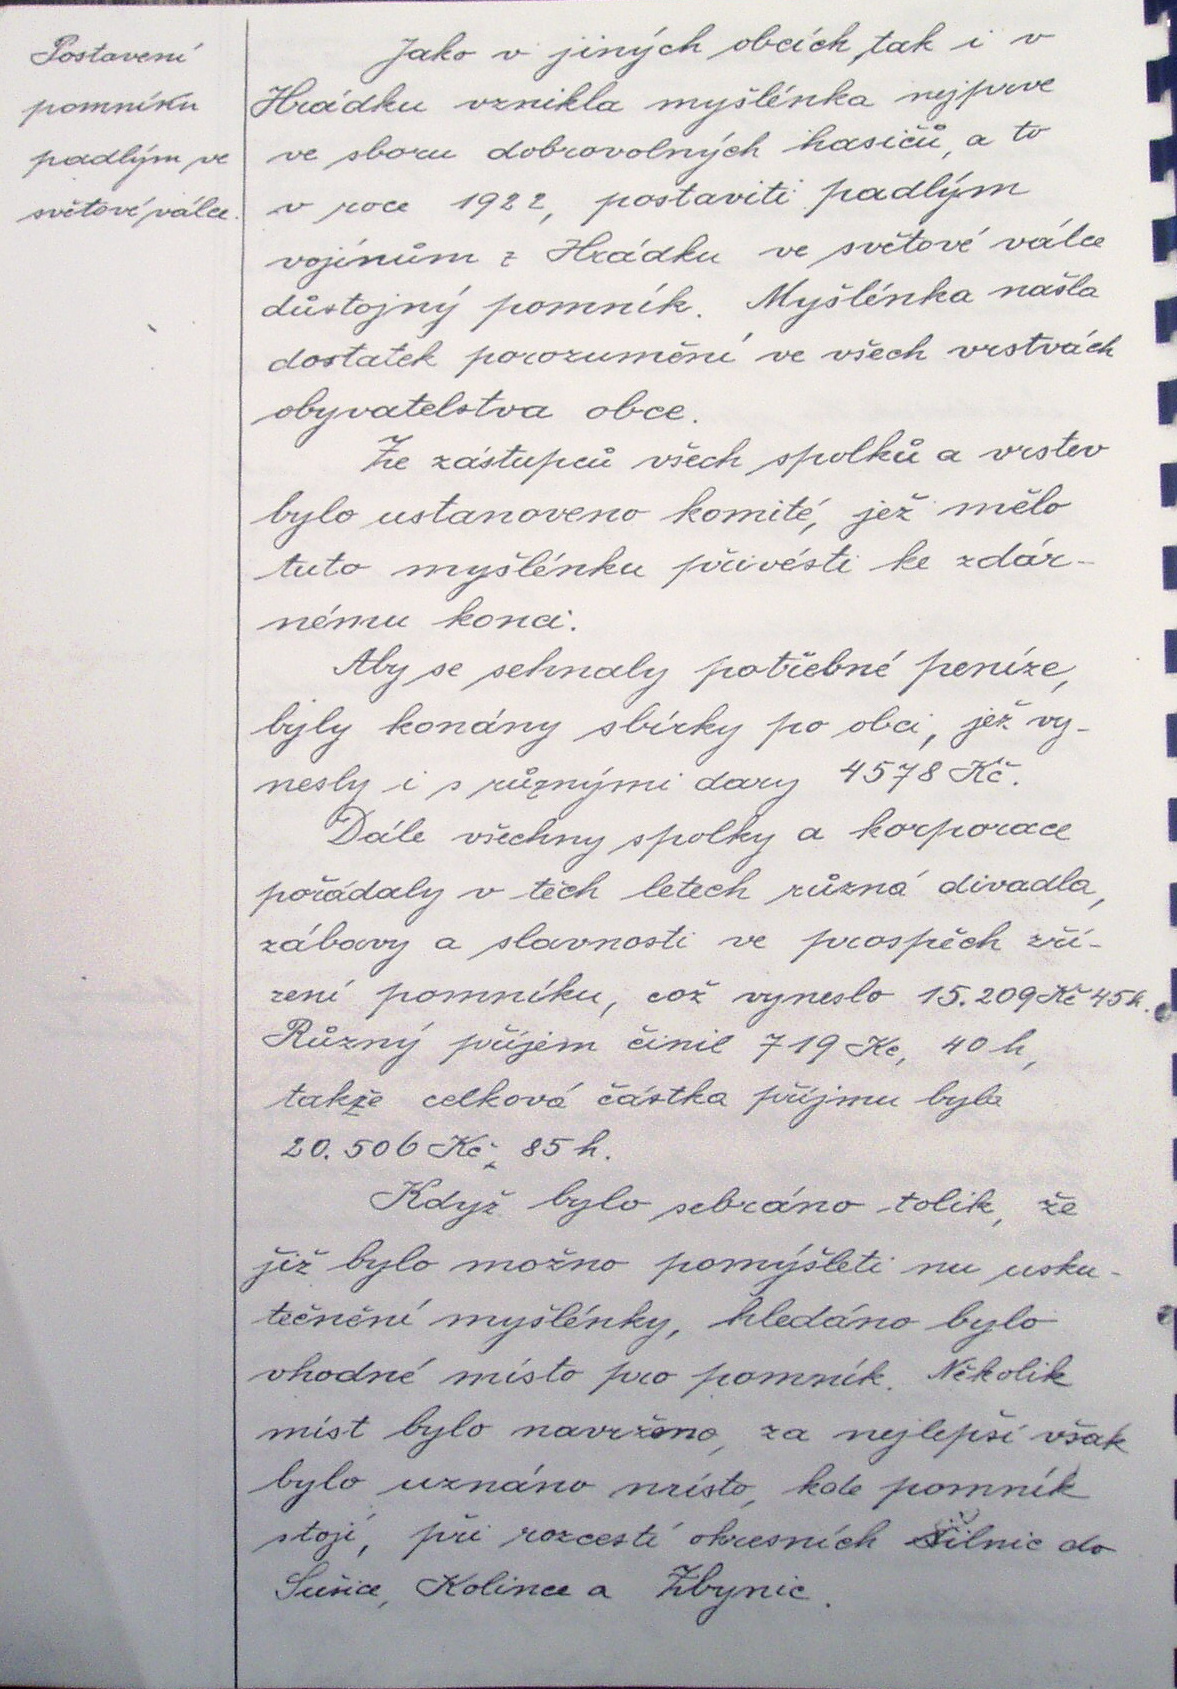 Postavení
pomníku
padlým ve
světové válce.
Jako v jiných obcích, tak i v
Hrádku vznikla myšlénka nejprve
ve sboru dobrovolných hasičů, a to
v roce 1922, postaviti padlým
vojínům z Hrádku ve světové válce
důstojný pomník. Myšlénka našla
dostatek porozumění ve všech vrstvách
obyvatelstva obce.
Ze zástupců všech spolků a vrstev
bylo ustanoveno komité, jež mělo
tuto myšlénku přivésti ke zdár-
nému konci.
Aby se sehnaly potřebné peníze,
byly konány sbírky po obci, jež vy-
nesly i s různými dary 4578 Kč.
Dále všechny spolky a korporace
pořádaly v těch letech různá divadla,
zábavy a slavnosti ve prospěch zří-
zení pomníku, což vyneslo 15.209 Kč 45 h.
Různý příjem činil 719 Kč, 40 h,
takže celková částka příjmu byla
20.506 Kč, 85 h.
Když bylo sebráno tolik, že
již bylo možno pomýšleti na usku-
tečnění myšlénky, hledáno bylo
vhodné místo pro pomník. Několik
míst bylo navrženo, za nejlepší však
bylo uznáno místo, kde pomník
stojí, při rozcestí okresních silnic do
Sušice, Kolince a Zbynic.